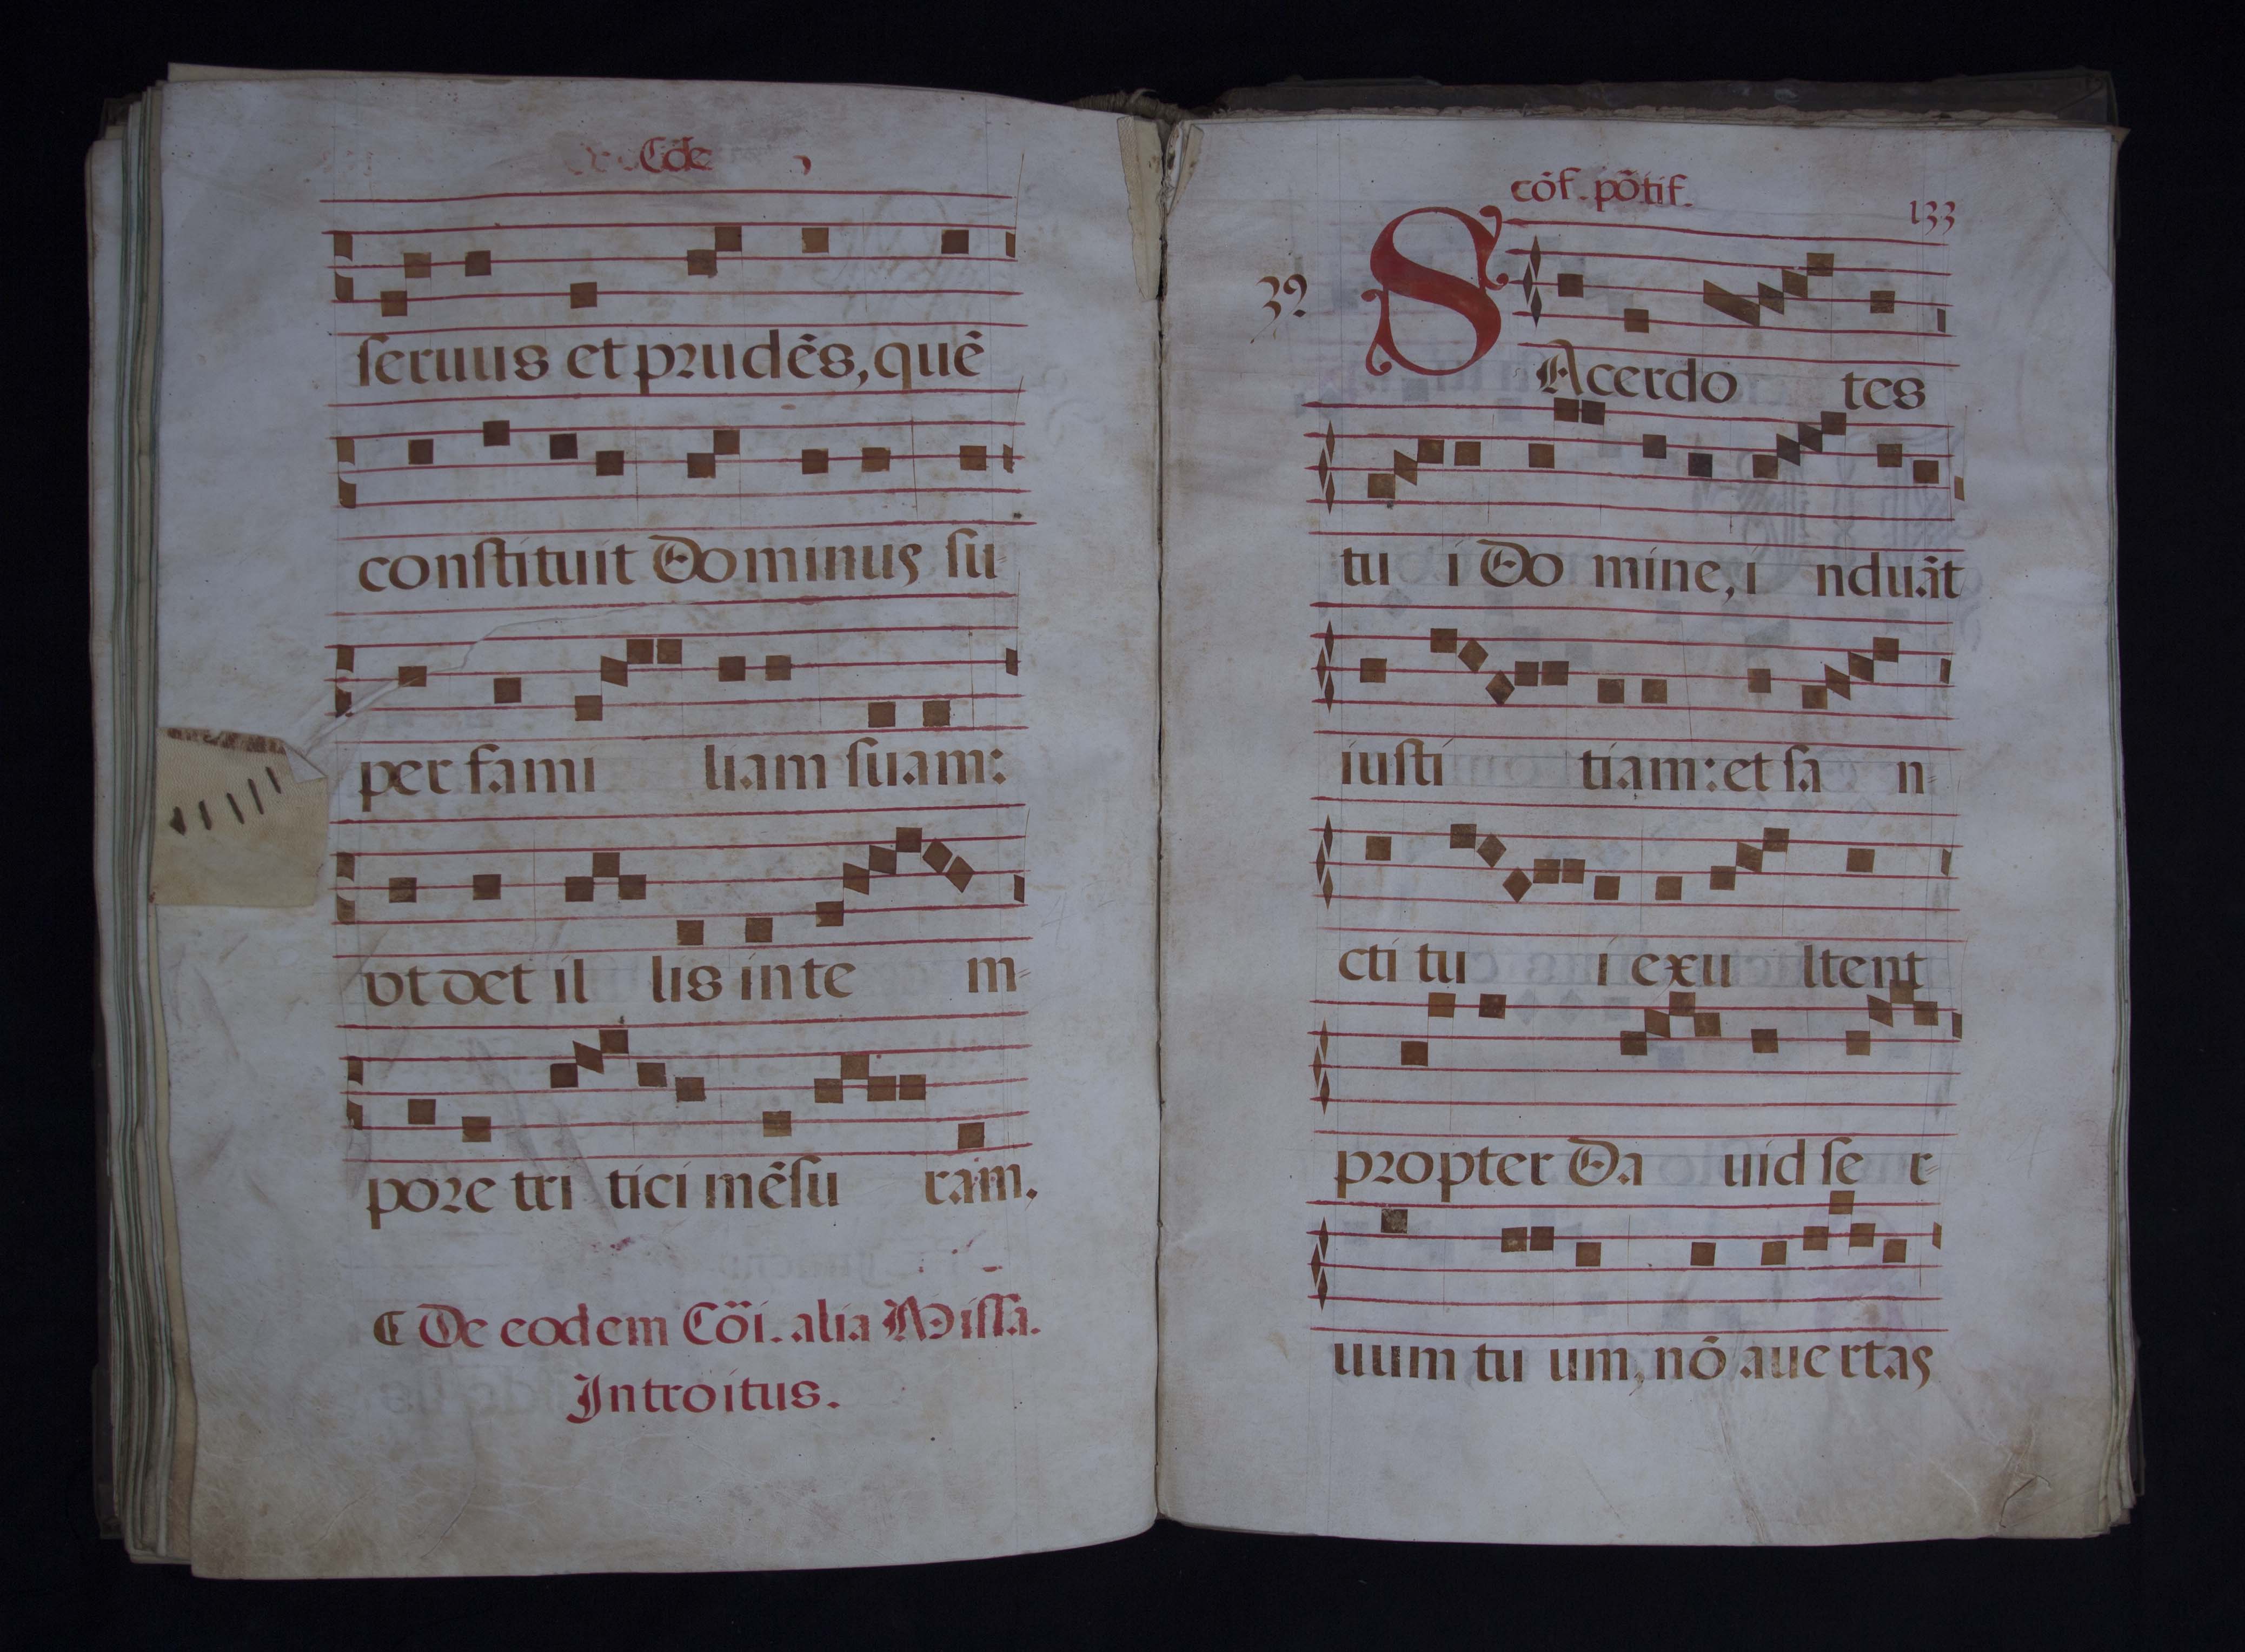 Cõe
ſeruus et prudẽs, quẽ
conſtituit Dominus ſu-
per fami liam ſuam:
vt det il lis in te m-
pore tri tici mẽſu ram.
De eodem Cõi. alia Miſſa.
Introitus.
cõf. põtif.
133
39
SAcerdo tes
tu i Do mine, i nduãt
iuſti tiam: et ſa n-
cti tu i exu ltent
propter Da uid ſe r-
uum tu um, nõ aue rtas